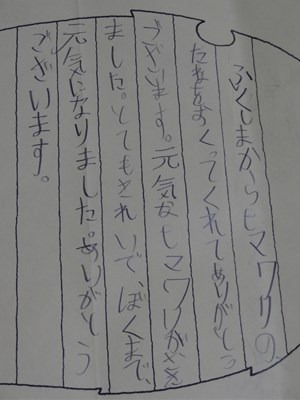 ふくしまからヒマワリの、
たねをおくってくれてありがとう
ございます。元気なヒマワリがさき
ました。とてもきれいで、ぼくまで、
元気になりました。ありがとう
ございます。